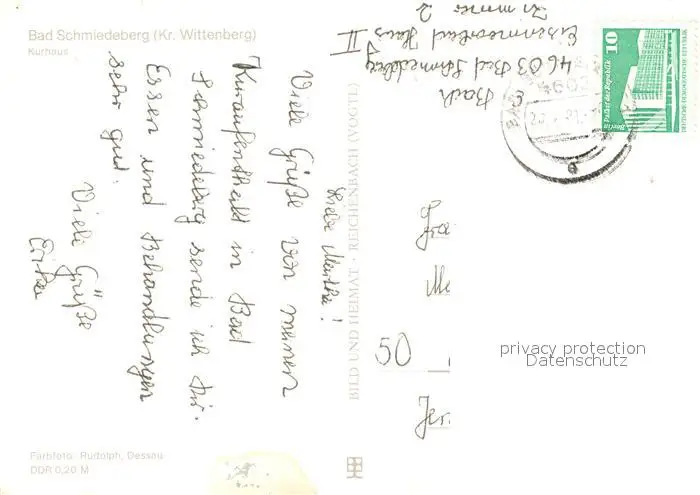 Bad Schmiedeberg (Kr. Wittenberg)
Kurhaus
Liebe Martha!
Viele Grüße von meinen
Kuraufenthalt in Bad
Schmiedeberg sende ich Dir.
Essen und Behandlungen
sehr gut.
Viele Grüße
Erika
Farbfoto: Rudolph, Dessau
DDR 0,20 M
BILD UND HEIMAT · REICHENBACH (VOGTL)
4603 Bad Schmiedeberg
Eisenmoorbad Haus II
Zimmer 2
10
Palast der Republik
Berlin
DEUTSCHE DEMOKRATISCHE REPUBLIK
4603
50
Jer
privacy protection
Datenschutz